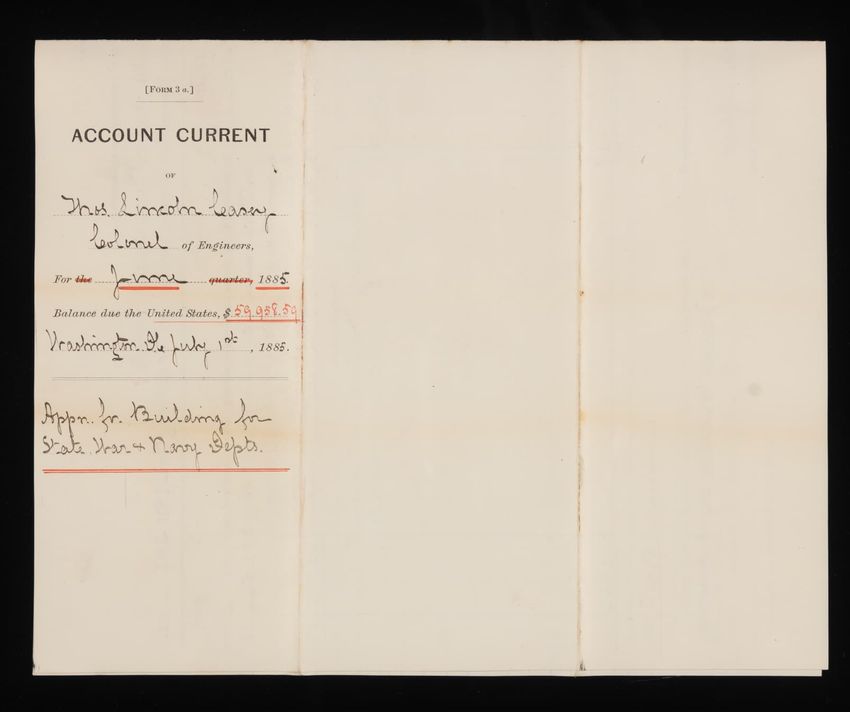 [FORM 3 a.]
ACCOUNT CURRENT
OF
Thos. Lincoln Casey
Colonel of Engineers,
For the June quarter, 1885.
Balance due the United States, $59.958.59
Washington DC July 1st, 1885.
Appn. for Building for
State, War & Navy Depts.